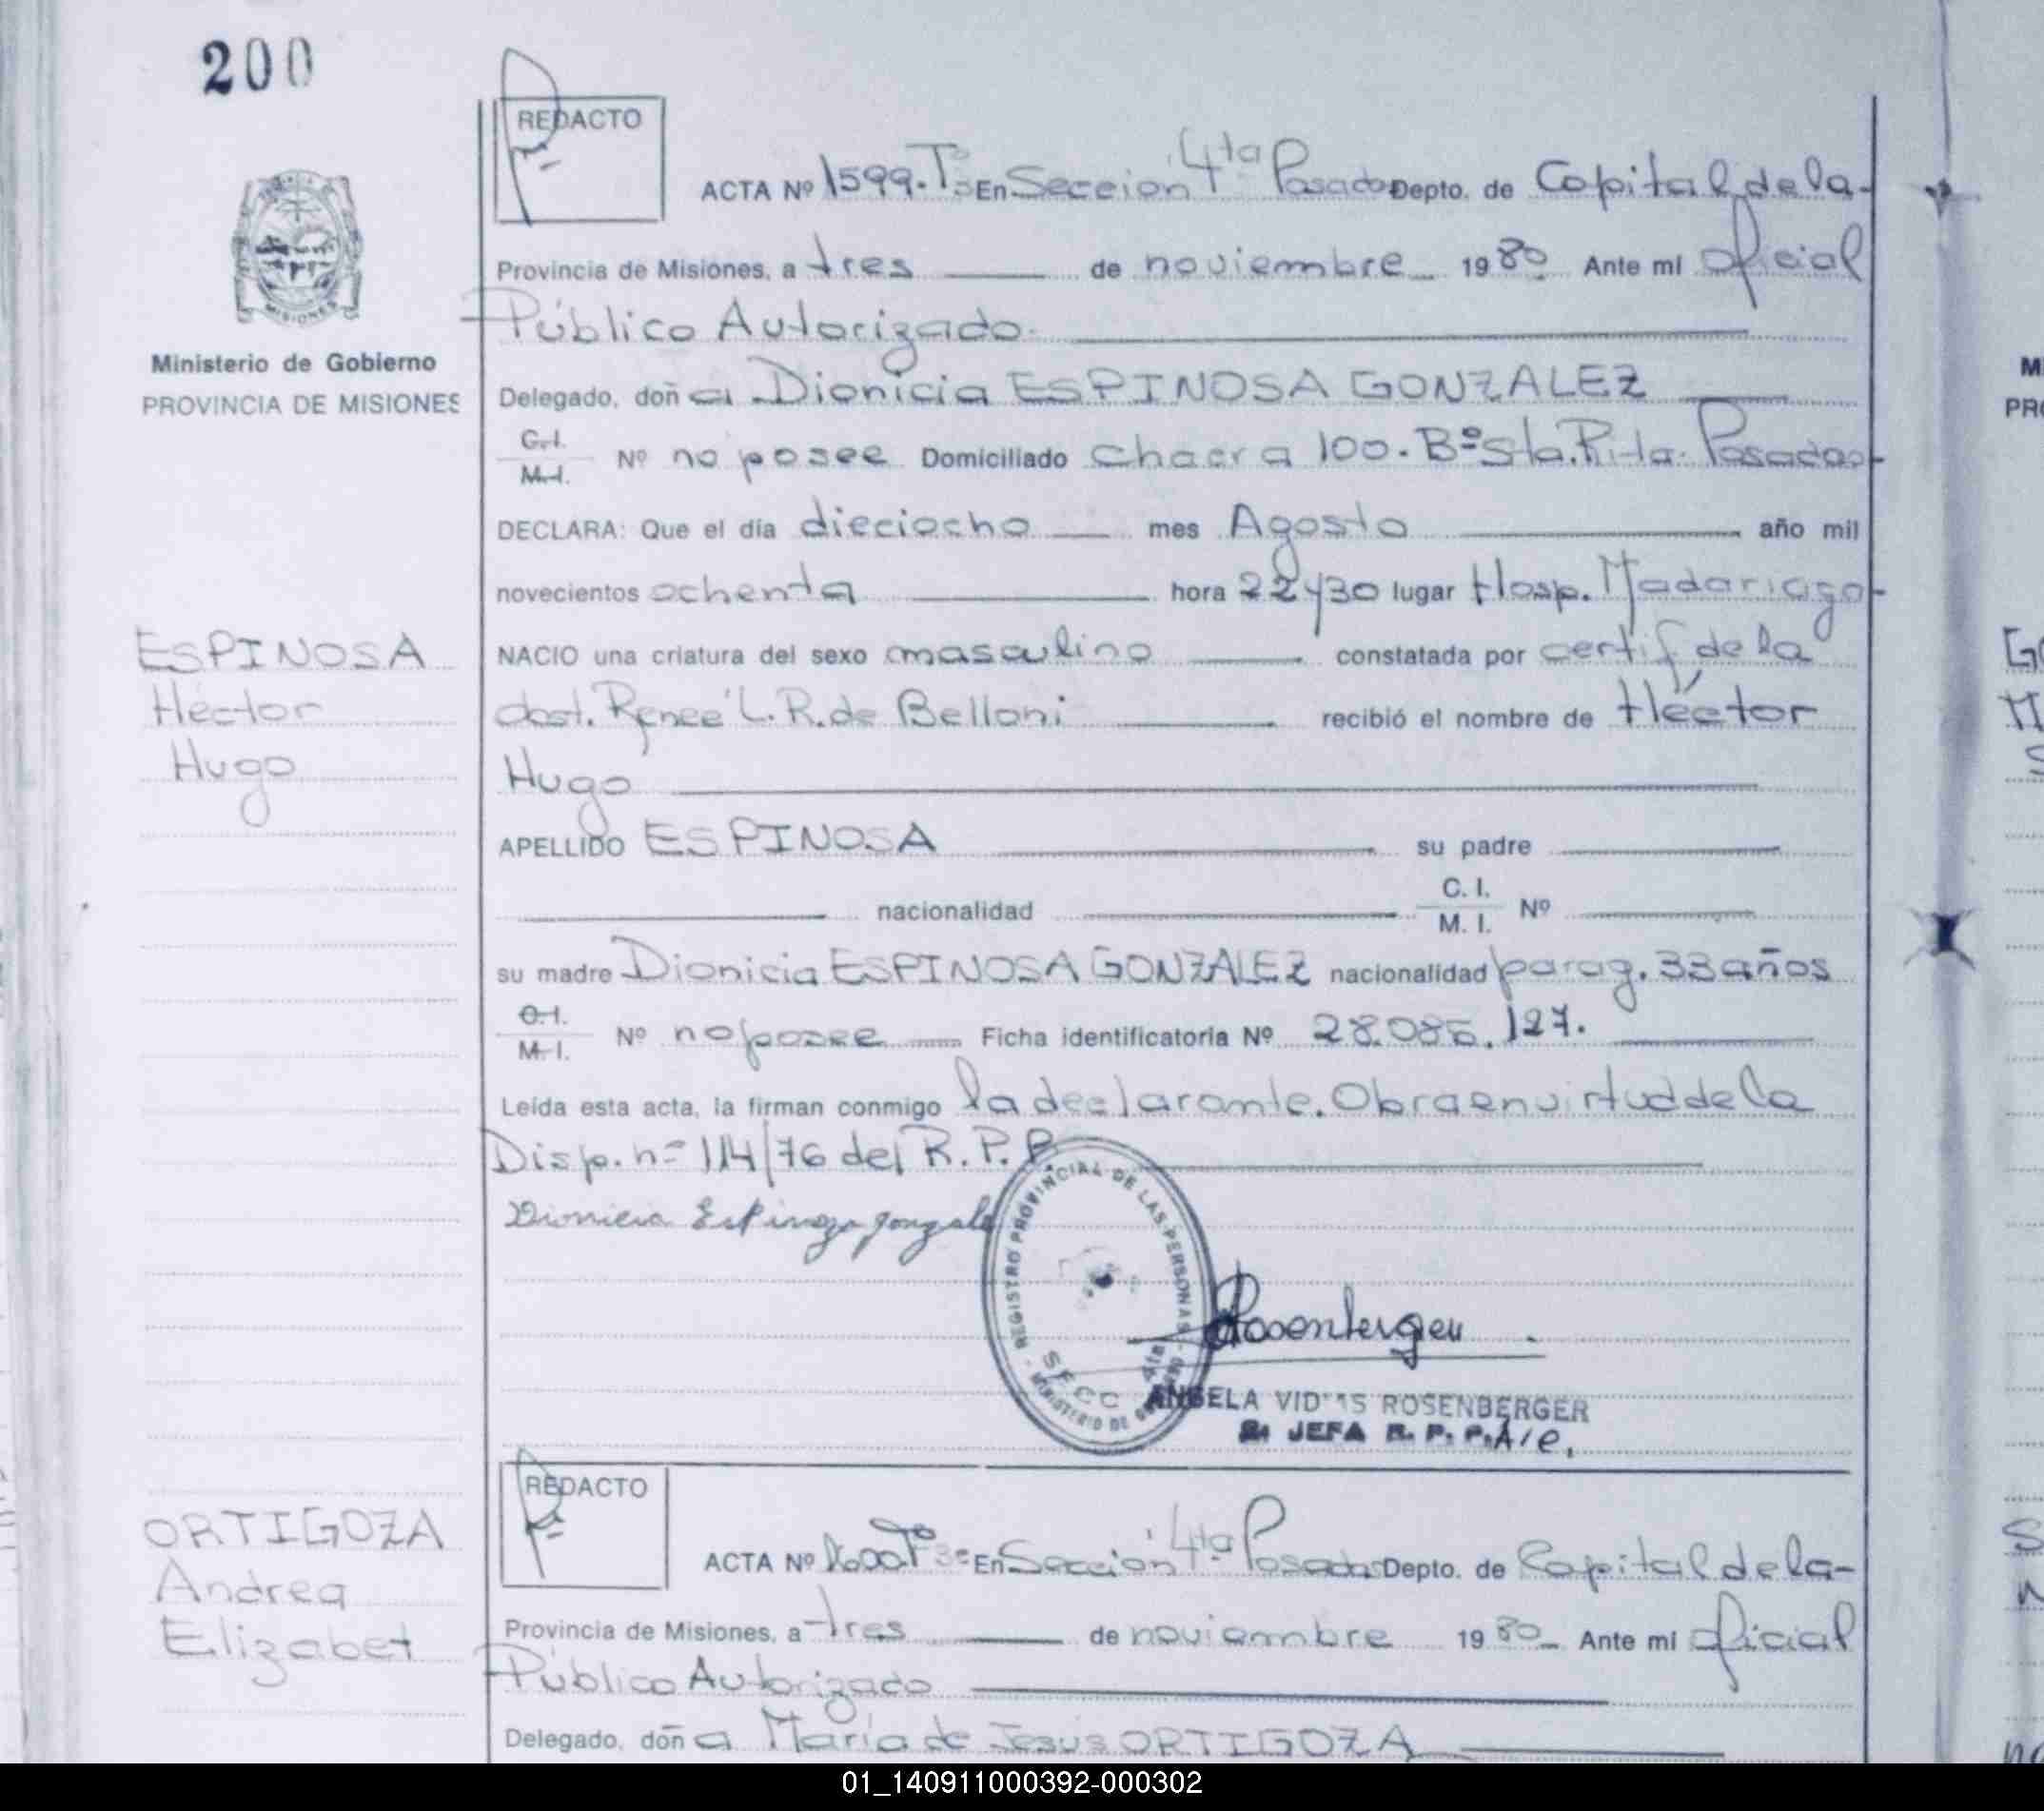 200
REDACTO
ACTA Nº 1599. Tº 3º En Seccion 4ta Posadas Depto. de Capital de la-
Provincia de Misiones, a tres de noviembre 1980 Ante mi oficial
Público Autorizado.
Ministerio de Gobierno
PROVINCIA DE MISIONES
Delegado, doña Dionicia ESPINOSA GONZALEZ
C. I.
M. I. Nº no posee Domiciliado chacra 100. Bº Sta. Rita. Posadas-
DECLARA: Que el día dieciocho mes Agosto año mil
novecientos ochenta hora 22y30 lugar Hosp. Madariaga-
ESPINOSA
Héctor
Hugo
NACIO una criatura del sexo masculino constatada por certif de la
obst. Reneé L. R. de Belloni recibió el nombre de Héctor
Hugo
APELLIDO ESPINOSA su padre
nacionalidad C. I.
M. I. Nº
su madre Dionicia ESPINOSA GONZALEZ nacionalidad parag. 33 años
C. I.
M. I. Nº no posee Ficha identificatoria Nº 28.085.127.
Leída esta acta, la firman conmigo la declarante. Obra en virtud de la
Disp. nº 114/76 del R. P. P.
Dionicia Espinoza gonzale
REGISTRO PROVINCIAL DE LAS PERSONAS - MINISTERIO DE
SECC 4ta
Rosenberger
ANGELA ROSENBERGER
JEFA R. P. P. A/c.
REDACTO
ORTIGOZA
Andrea
Elizabet
ACTA Nº 1600 Tº 3º En Seccion 4ta Posadas Depto. de Capital de la-
Provincia de Misiones, a tres de noviembre 1980 Ante mi oficial
Público Autorizado
Delegado, doña María de Jesus ORTIGOZA
01_140911000392-000302